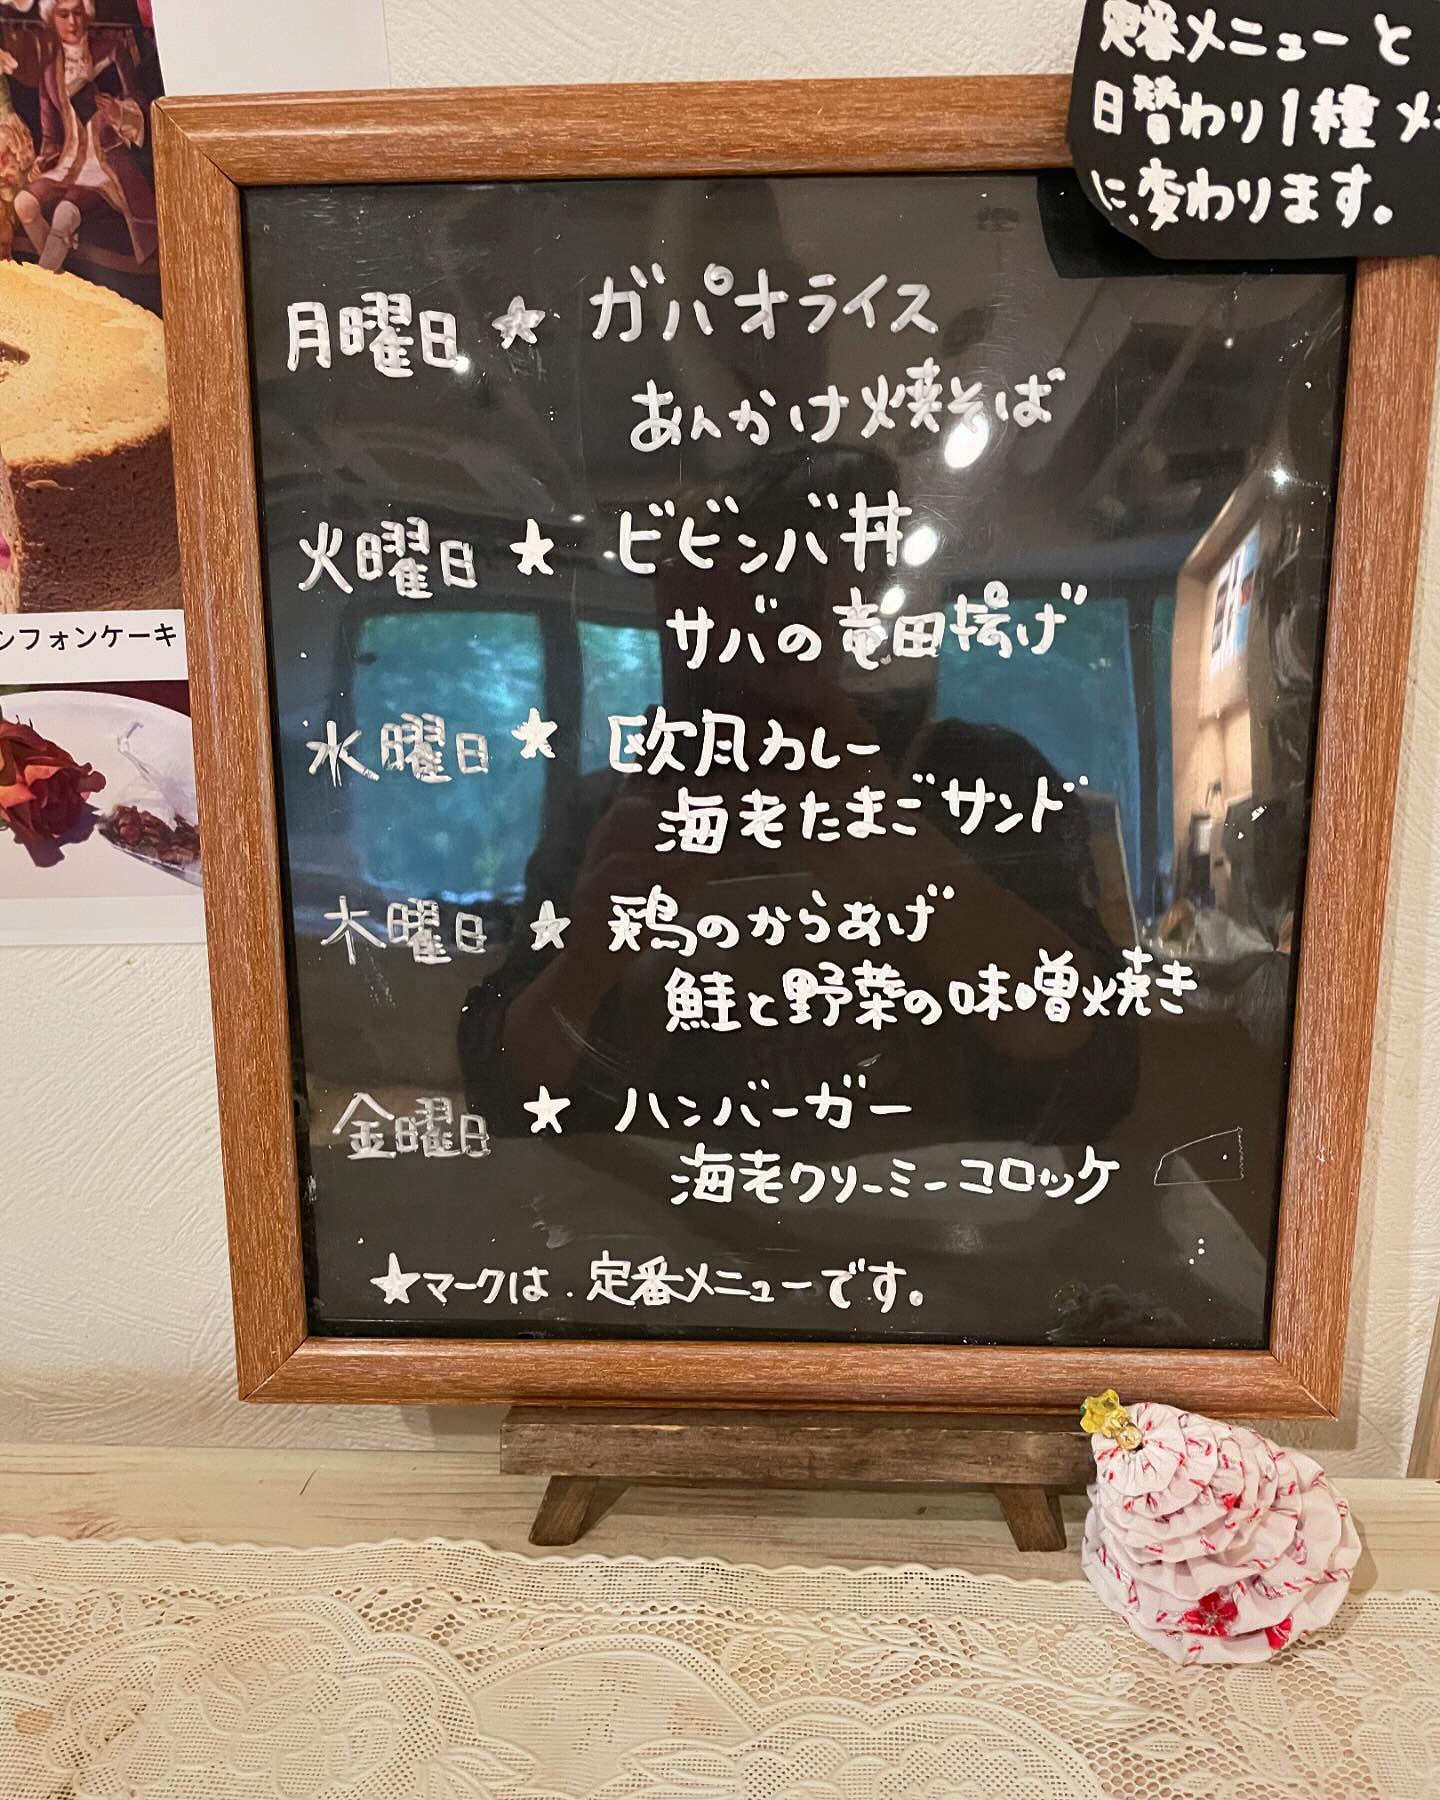 定番メニューと
日替わり1種メ
に、変わります。
月曜日 ★ ガパオライス
あんかけ焼そば
火曜日 ★ ビビンバ丼
サバの竜田揚げ
水曜日 ★ 欧風カレー
海老たまごサンド
木曜日 ★ 鶏のからあげ
鮭と野菜の味噌焼き
金曜日 ★ ハンバーガー
海老クリーミーコロッケ
★マークは、定番メニューです。
シフォンケーキ